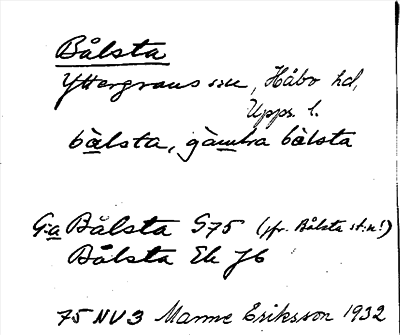 Bålsta
Yttergrans sn, Håbo hd,
Upps. l.
bålsta, gàmbra bålsta
G:a Bålsta S75 (jfr. Bålsta st:n!)
Bålsta Ek J6
75 NV3 Manne Eriksson 1932